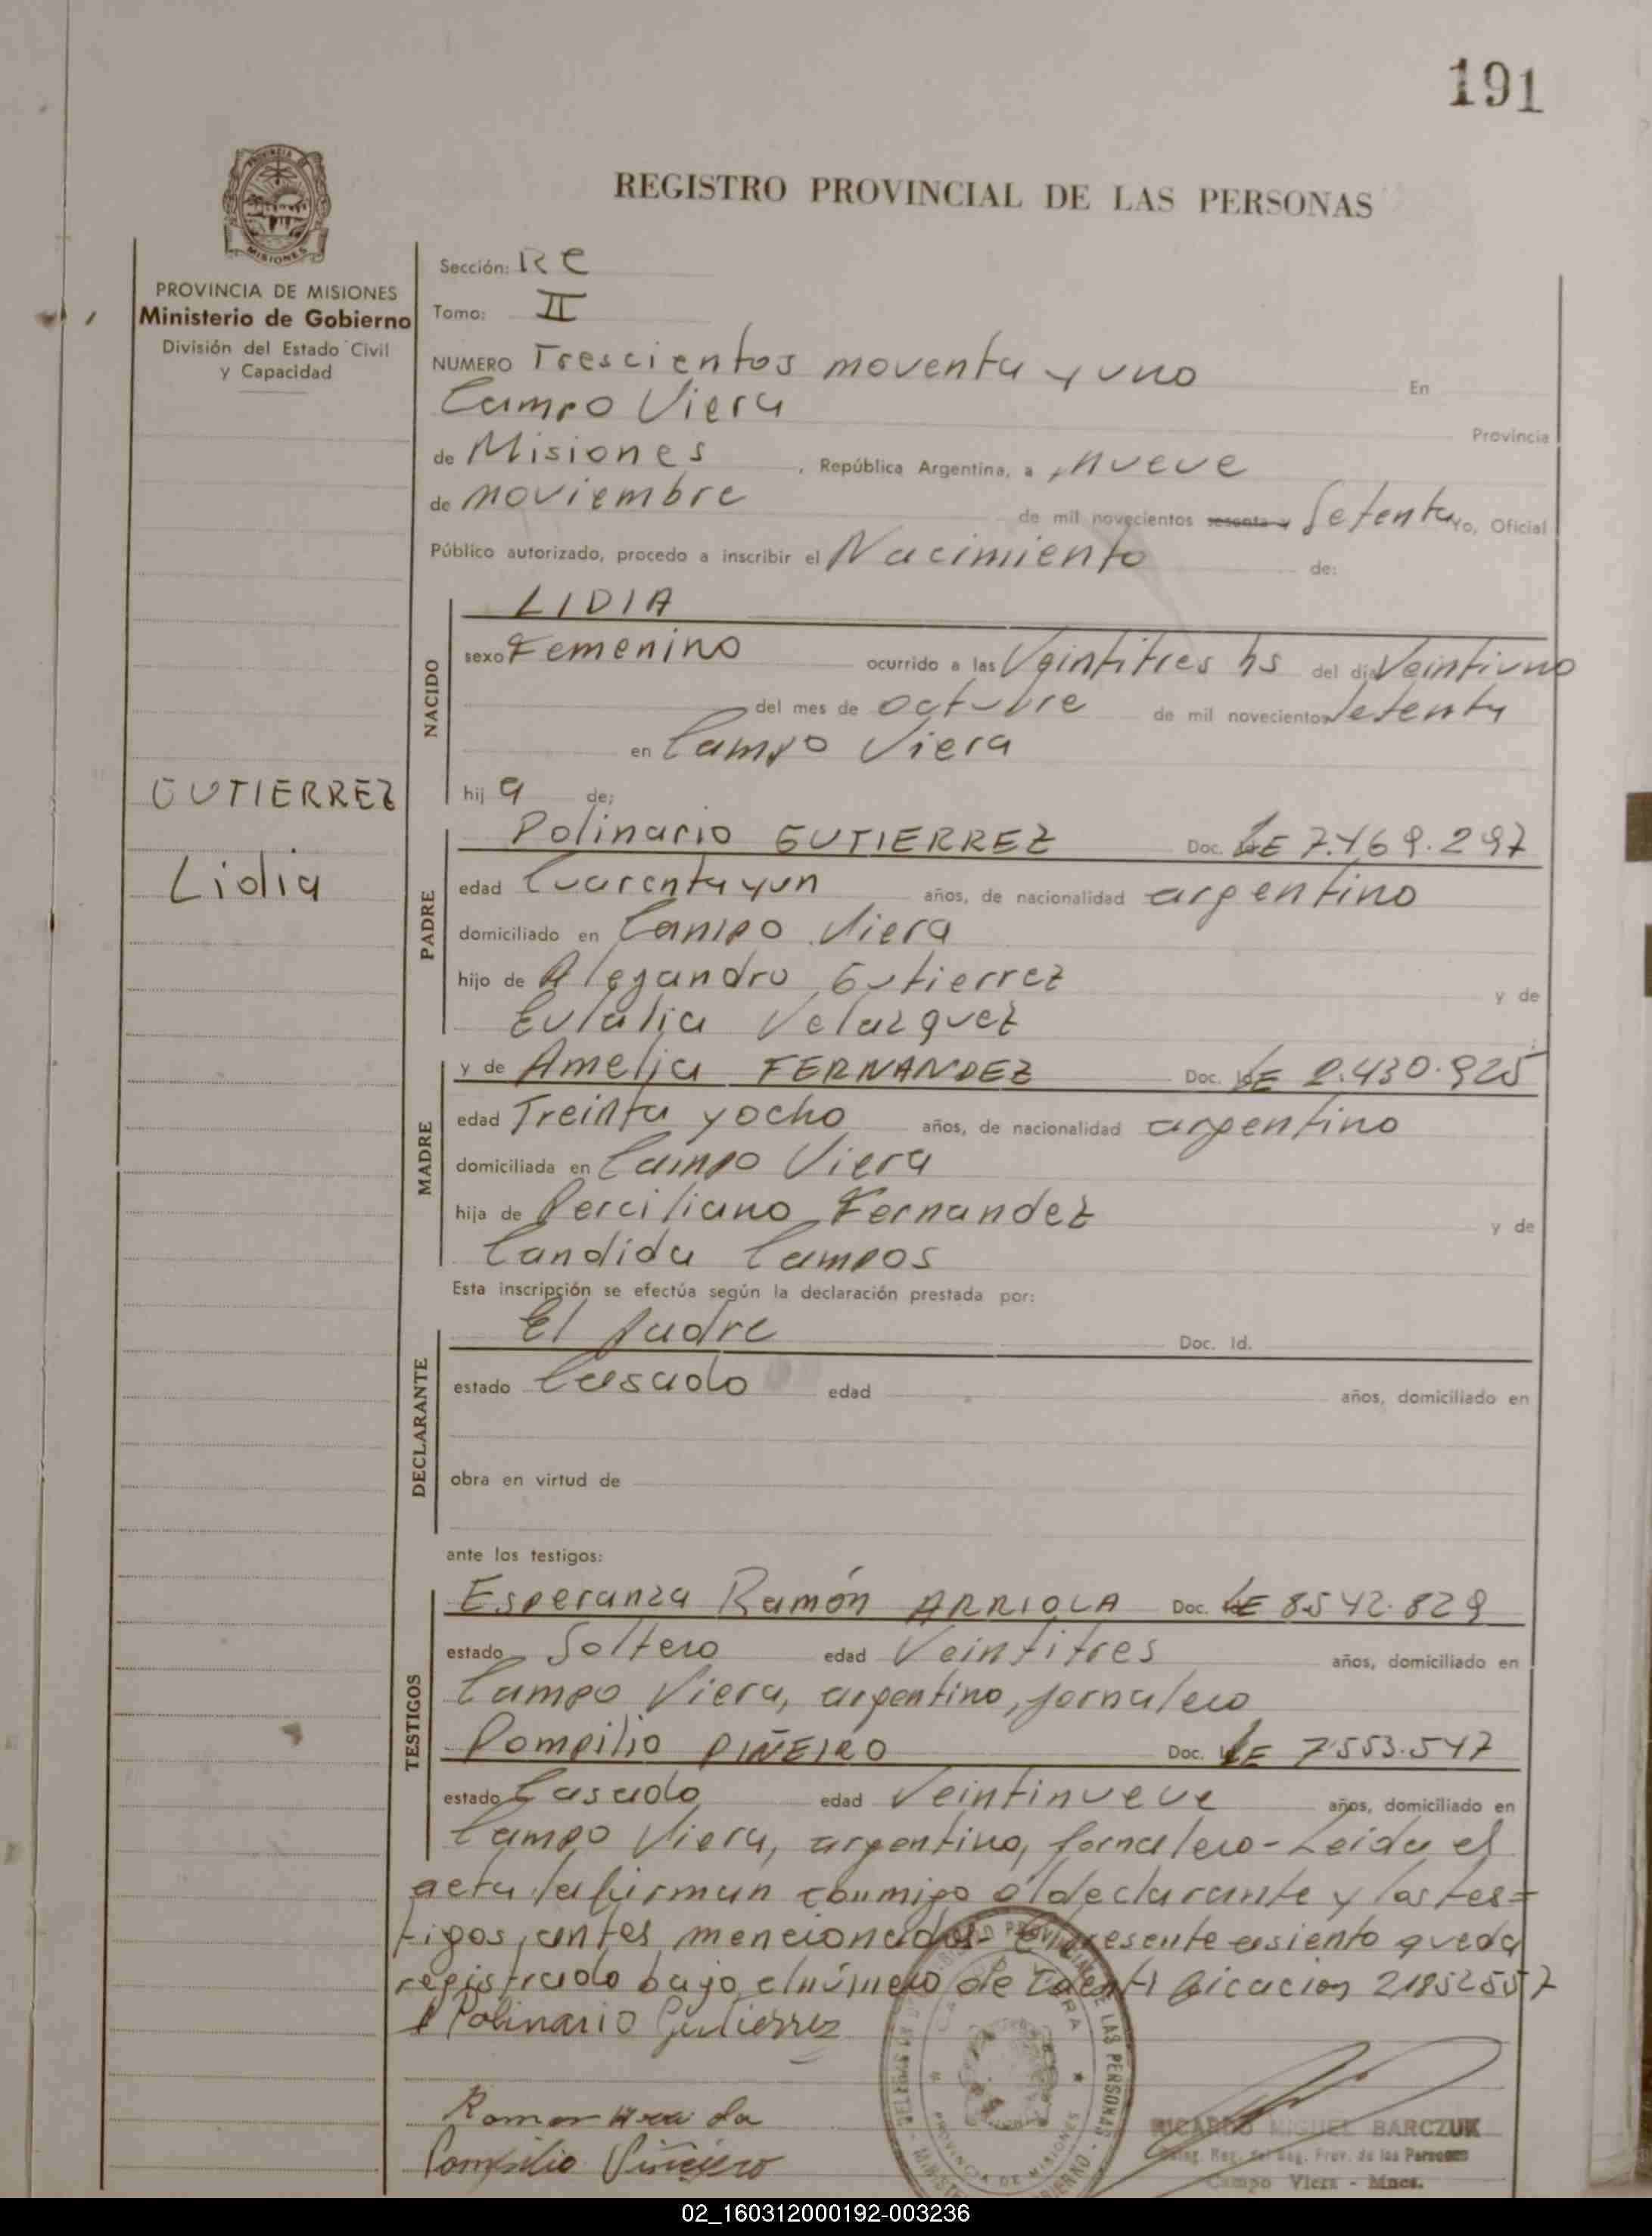 191
REGISTRO PROVINCIAL DE LAS PERSONAS
PROVINCIA DE MISIONES
Ministerio de Gobierno
División del Estado Civil
y Capacidad
Sección: RE
Tomo: II
NUMERO Trescientos noventa y uno En
Campo Viera Provincia
de Misiones, República Argentina, a nueve
de noviembre de mil novecientos sesenta y Setenta Yo, Oficial
Público autorizado, procedo a inscribir el Nacimiento de:
NACIDO
LIDIA
sexo Femenino ocurrido a las Veintitres hs del día Veintiuno
del mes de octubre de mil novecientos setenta
en Campo Viera
hija de;
GUTIERREZ
Lidia
PADRE
Polinario GUTIERREZ Doc. LE 7.469.297
edad Cuarenta y un años, de nacionalidad argentino
domiciliado en Campo Viera
hijo de Alejandro Gutierrez y de
Eulalia Velazquez
MADRE
y de Amelia FERNANDEZ Doc. LE 2.430.925
edad Treinta y ocho años, de nacionalidad argentino
domiciliada en Campo Viera
hija de Perciliano Fernandez y de
Candida Campos
Esta inscripción se efectúa según la declaración prestada por:
DECLARANTE
El padre Doc. Id.
estado Casado edad años, domiciliado en
obra en virtud de
ante los testigos:
TESTIGOS
Esperanza Ramón ARRIOLA Doc. LE 8.542.829
estado Soltero edad Veintitres años, domiciliado en
Campo Viera, argentino, jornalero
Pompilio PIÑEIRO Doc. LE 7.553.547
estado Casado edad Veintinueve años, domiciliado en
Campo Viera, argentino, jornalero - Leida el
acta la firman conmigo el declarante y los tes=
tigos, antes mencionados - El presente asiento queda
registrado bajo el número de identificacion 21852557
Polinario Gutierrez
Ramon
Pompilio Piñeiro
RICARDO MIGUEL BARCZUK
Reg. Prov. de las Personas
Campo Viera - Mnes.
PROVINCIA DE MISIONES
02_160312000192-003236